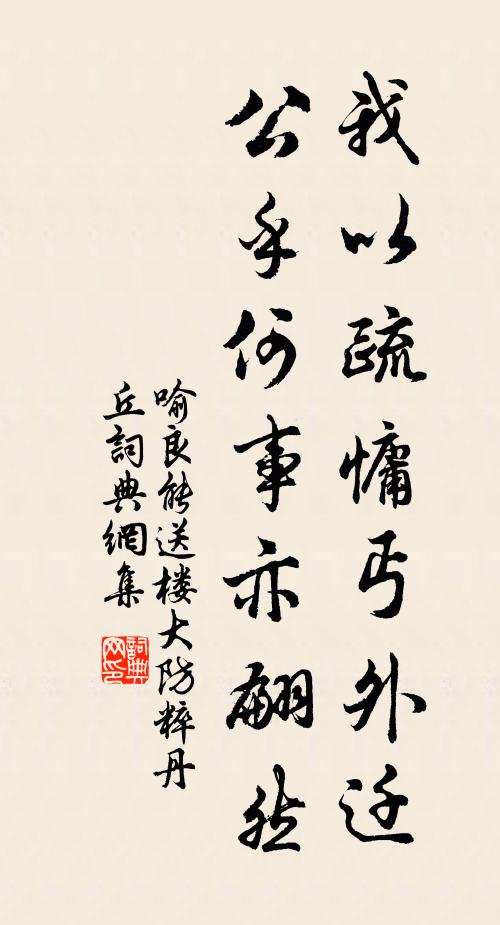 我以疏慵丐外迁
公乎何事亦翩然
喻良能送楼大防粹丹
丘詞典網集
詞典网印